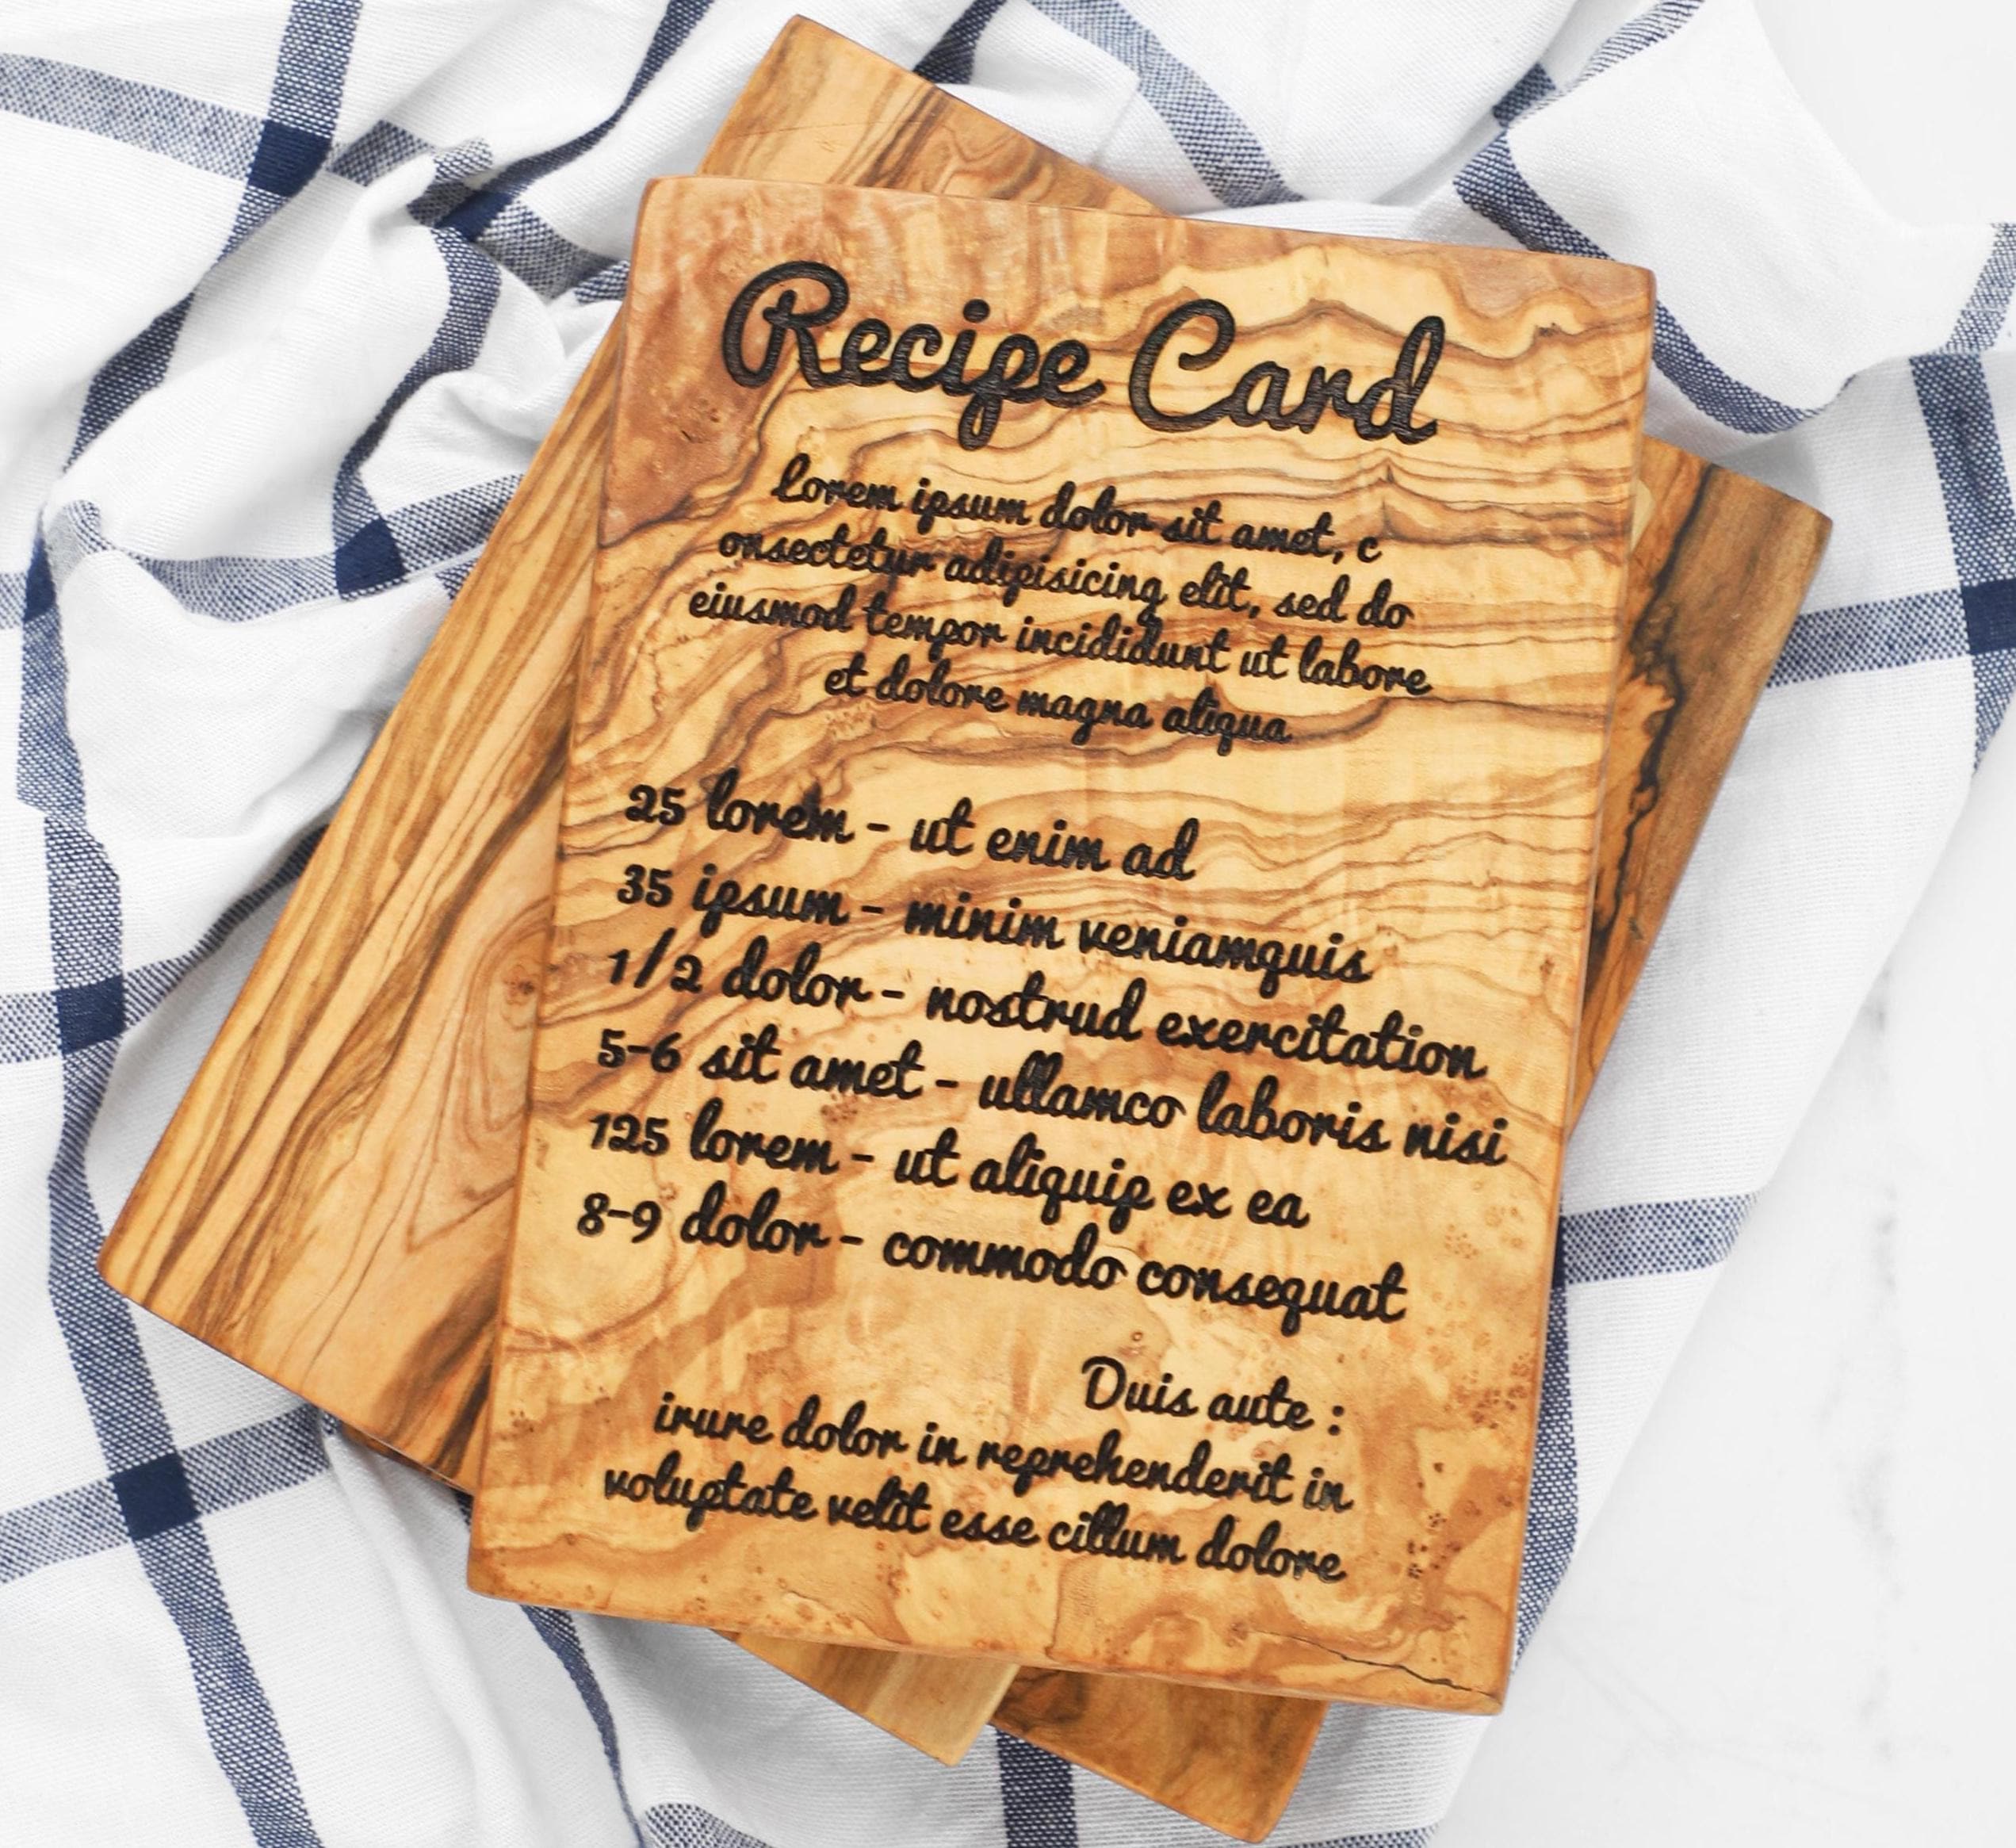 Recipe Card
Lorem ipsum dolor sit amet, c
onsectetur adipisicing elit, sed do
eiusmod tempor incididunt ut labore
et dolore magna aliqua
25 lorem - ut enim ad
35 ipsum - minim veniamquis
1/2 dolor - nostrud exercitation
5-6 sit amet - ullamco laboris nisi
125 lorem - ut aliquip ex ea
8-9 dolor - commodo consequat
Duis aute :
irure dolor in reprehenderit in
voluptate velit esse cillum dolore